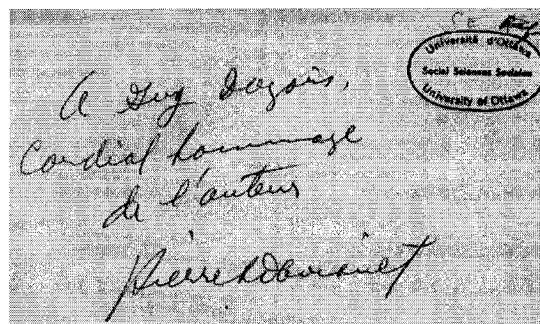 Université d'Ottawa
Social Sciences Sociales
University of Ottawa
A Guy
Cordial hommage
de l'auteur
Pierre